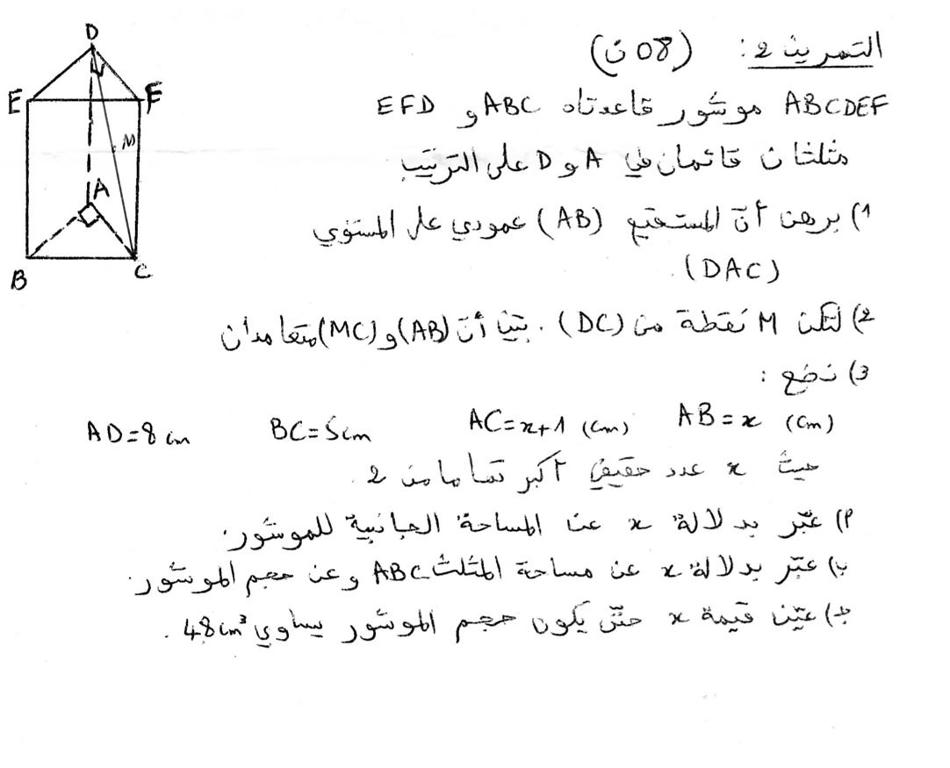 التمرين 2: (08 ن)
ABCDEF موشور قاعدتاه ABC و EFD
مثلثان قائمان في A و D على الترتيب
1) برهن أنّ المستقيم (AB) عمودي على المستوي
(DAC).
2) لتكن M نقطة من (DC). بيّن أنّ (AB) و (MC) متعامدان
3) نضع :
AB=x (cm) AC=x+1 (cm) BC=5cm AD=8cm
حيث x عدد حقيقي أكبر تماما من 2.
أ) عبّر بدلالة x عن المساحة الجانبية للموشور.
ب) عبّر بدلالة x عن مساحة المثلث ABC وعن حجم الموشور.
ج) عيّن قيمة x حتّى يكون حجم الموشور يساوي 48cm³.
D
E
F
M
A
B
C